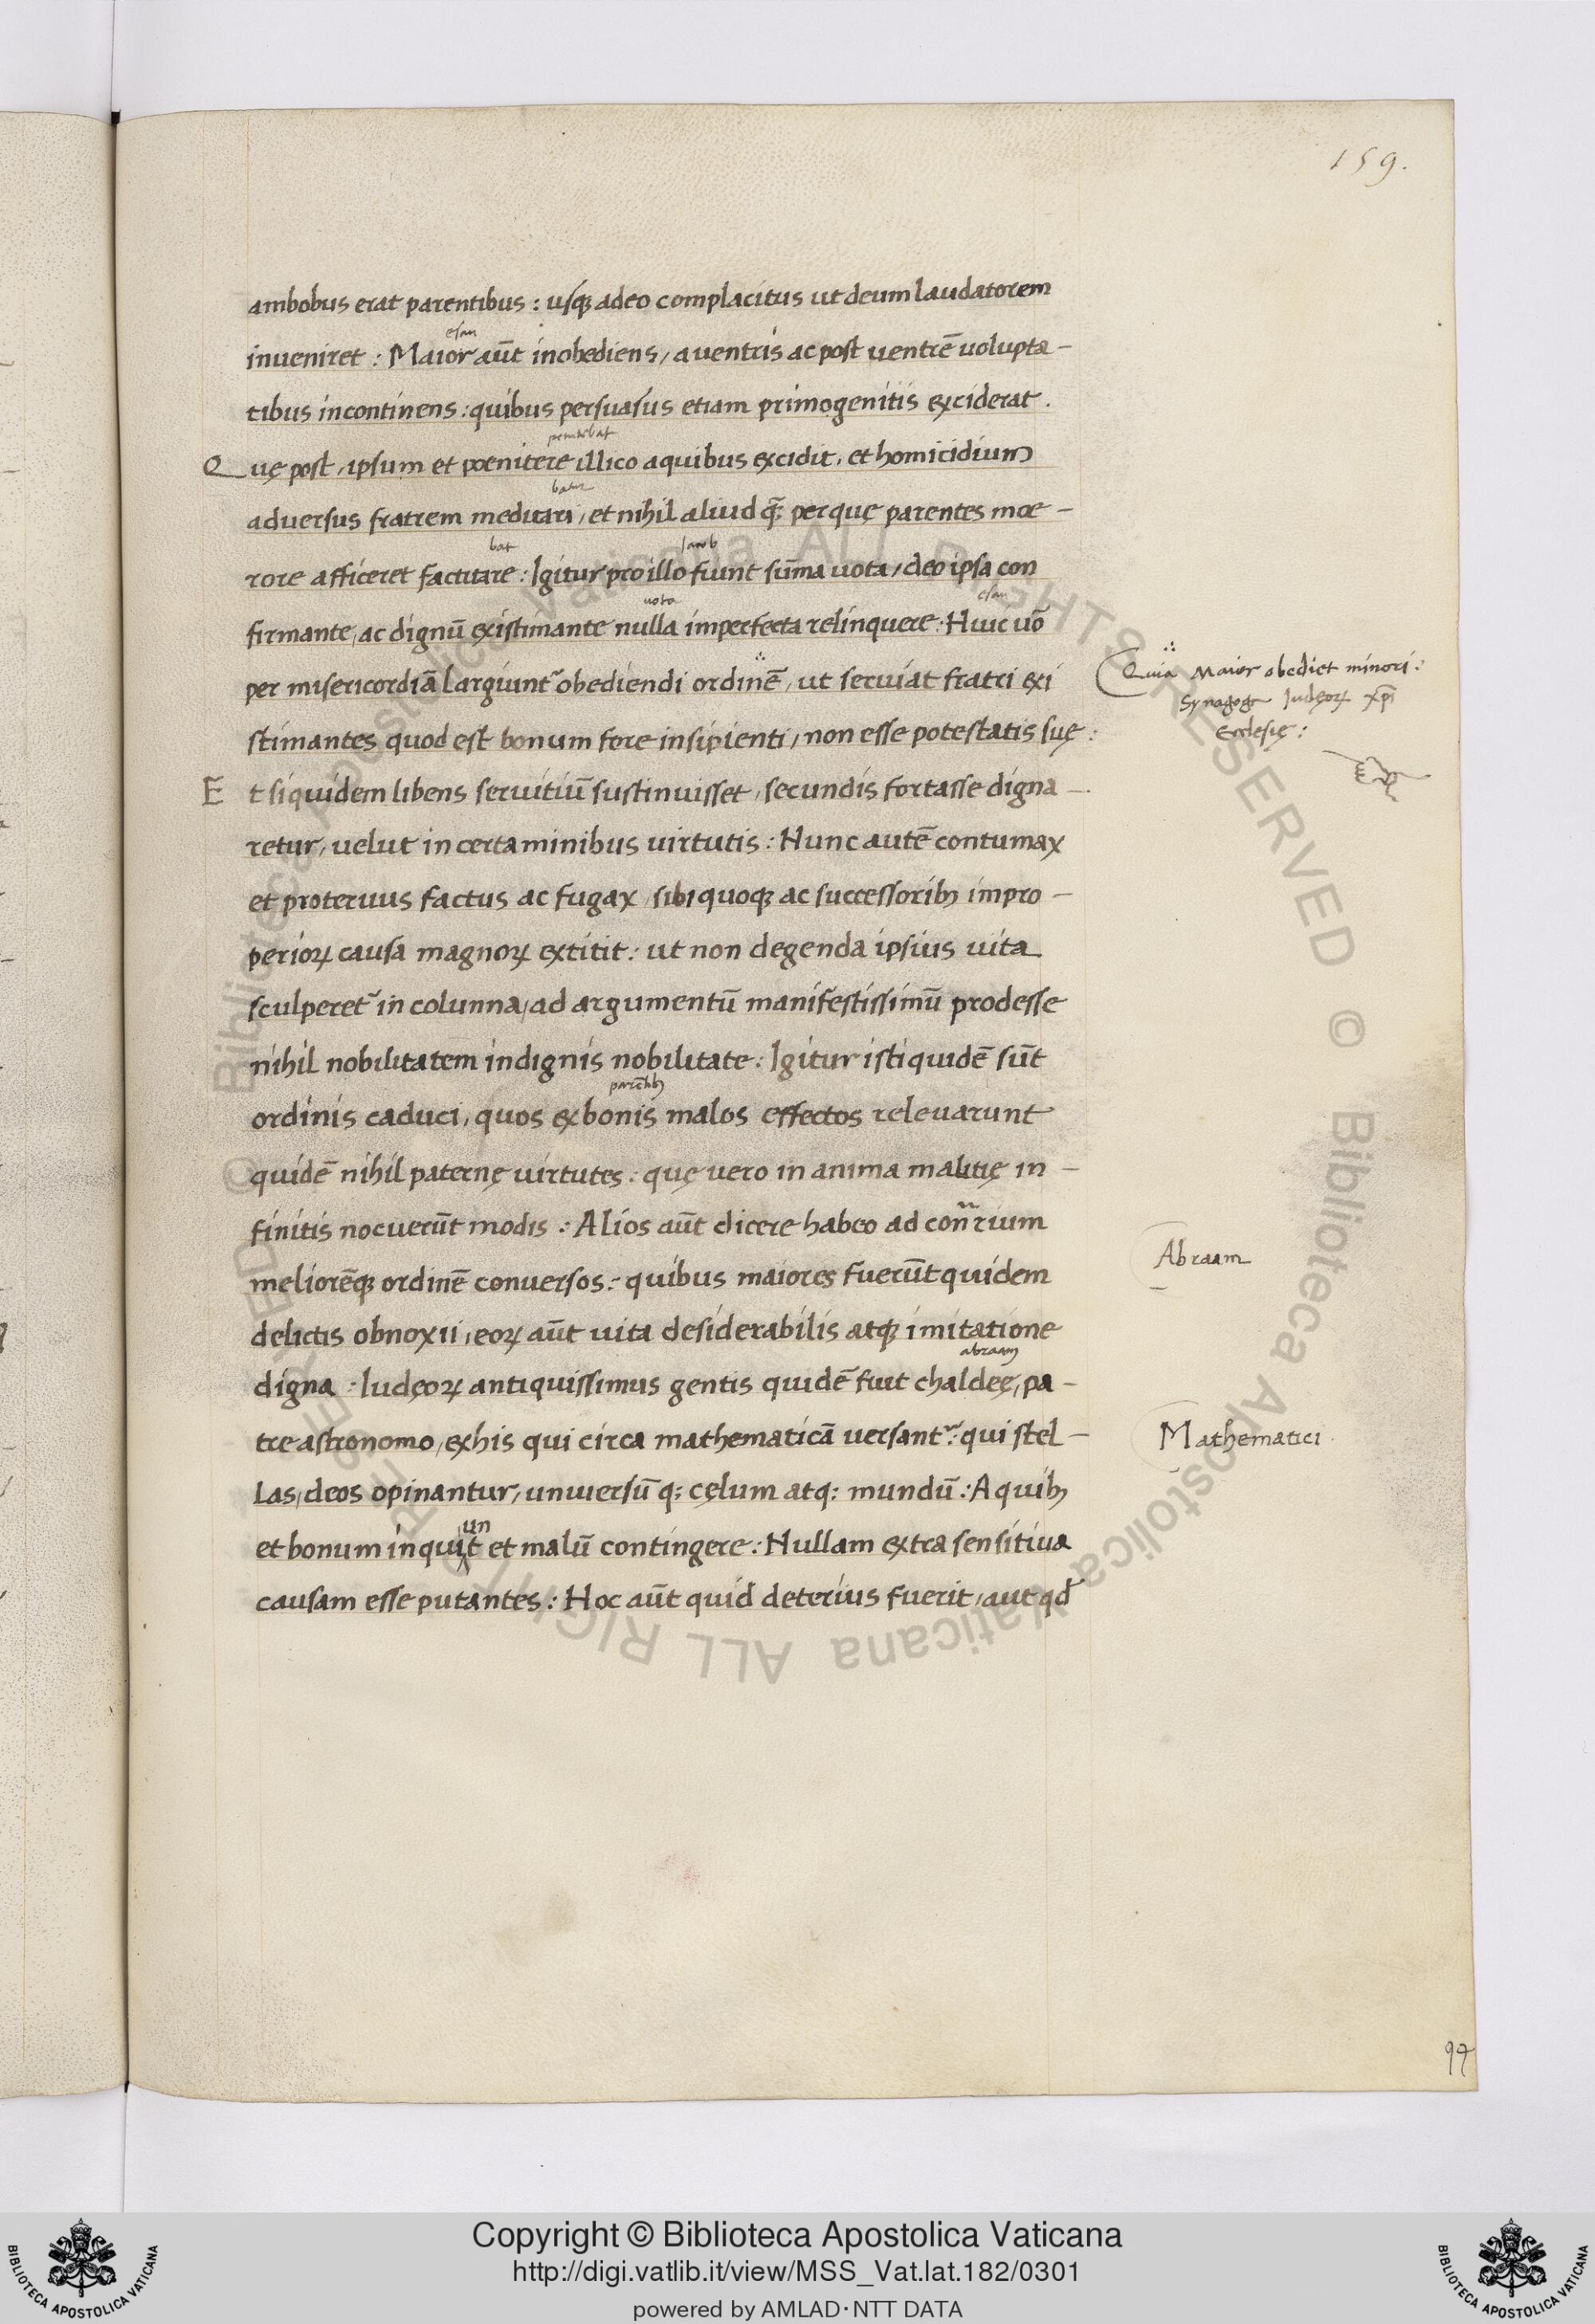 159.
ambobus erat parentibus : usqꝫ adeo complacitus ut deum laudatorem
esau
inveniret : Maior aūt inobediens, a ventris ac post ventrē volupta-
tibus incontinens : quibus persuasus etiam primogenitis exciderat.
penitebat
Quę post, ipsum et poenitere illico a quibus excidit, et homicidium
batur
adversus fratrem meditari, et nihil aliud qꝫ̄ per quę parentes moe-
bat Iacob
rore afficeret factitare : Igitur pro illo fiunt sūma vota, deo ipsa con
vota esau
firmante, ac dignū existimante nulla imperfecta relinquere : Huic vō
per misericordiā Largiunt᷑ obediendi ordinē, ut serviat fratri exi
stimantes quod est bonum fore insipienti, non esse potestatis suę :
Et siquidem libens servitiū sustinuisset, secundis fortasse digna-
retur, velut in certaminibus virtutis : Hunc autē contumax
et protervus factus ac fugax, sibi quoqꝫ ac successoribꝫ impro-
perioꝝ causa magnoꝝ extitit : ut non degenda ipsius vita
sculperet᷑ in colunna, ad argumentū manifestissimū prodesse
nihil nobilitatem indignis nobilitate : Igitur isti quidē sūt
parētibꝫ
ordinis caduci, quos ex bonis malos effectos relevarunt
quidē nihil paternę virtutes : quę vero in anima malitię in-
finitis nocuerūt modis : Alios aūt dicere habeo ad conrium
meliorēqꝫ ordinē conversos : quibus maiores fuerūt quidem
delictis obnoxii, eoꝝ aūt vita desiderabilis atqꝫ imitatione
abraam
digna : Iudęoꝝ antiquissimus gentis quidē fuit chaldeę, pa-
tre astronomo, ex his qui circa mathematicā versant᷑ : qui stel-
Las, deos opinantur, universū q; cęlum atq; mundū : A quibꝫ
un
et bonum inquit et malū contingere : Nullam extra sensitiva
causam esse putantes : Hoc aūt quid deterius fuerit, aut qd̄
Quia Maior obediet minori :
Synagoga Iudęoꝝ xp̄i
Ecclesię :
Abraam
Mathematici
97
© Biblioteca Apostolica Vaticana ALL RIGHTS RESERVED © Biblioteca Apostolica Vaticana ALL RIGHTS RESERVED
Copyright © Biblioteca Apostolica Vaticana
http://digi.vatlib.it/view/MSS_Vat.lat.182/0301
powered by AMLAD·NTT DATA
BIBLIOTECA APOSTOLICA VATICANA
BIBLIOTECA APOSTOLICA VATICANA